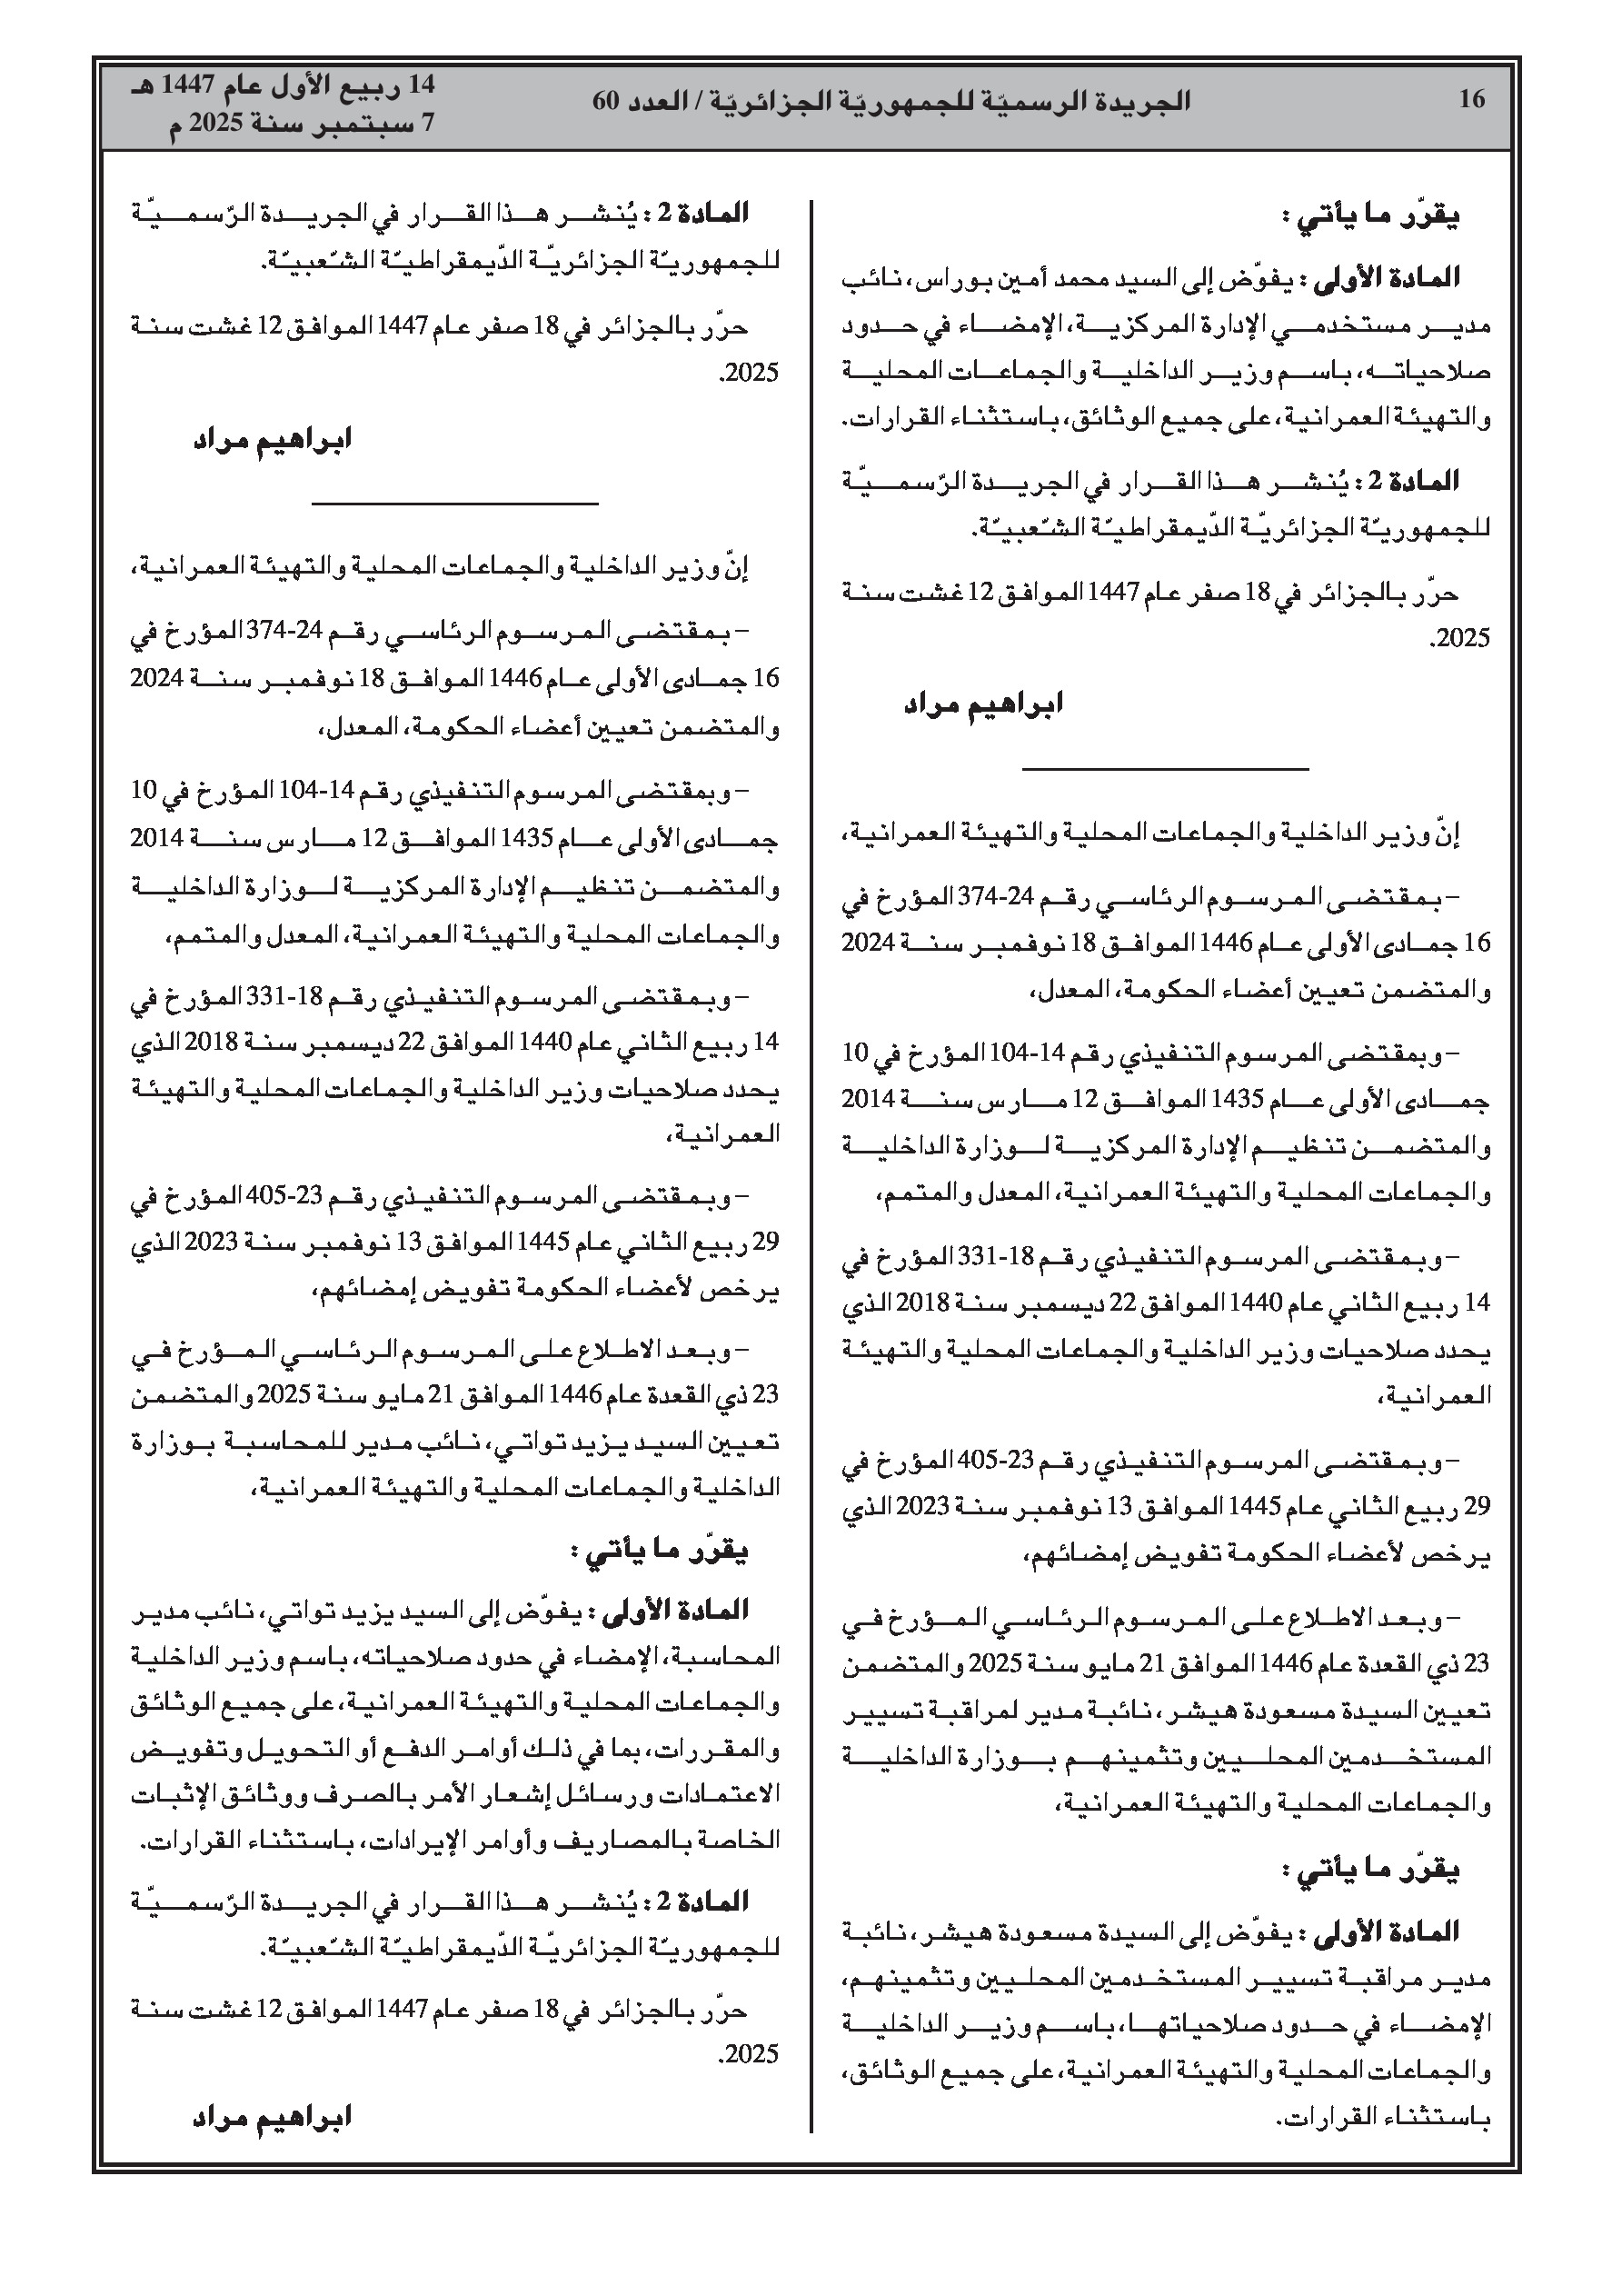 16
الجريدة الرسميّة للجمهوريّة الجزائريّة / العدد 60
14 ربيع الأول عام 1447 هـ
7 سبتمبر سنة 2025 م
يقرّر ما يأتي :
المادة الأولى : يفوّض إلى السيد محمد أمين بوراس، نائب
مدير مستخدمي الإدارة المركزية، الإمضاء في حدود
صلاحياته، باسم وزير الداخلية والجماعات المحلية
والتهيئة العمرانية، على جميع الوثائق، باستثناء القرارات.
المادة 2 : يُنشر هذا القرار في الجريدة الرّسميّة
للجمهوريّة الجزائريّة الدّيمقراطيّة الشّعبيّة.
حرّر بالجزائر في 18 صفر عام 1447 الموافق 12 غشت سنة
2025.
ابراهيم مراد
إنّ وزير الداخلية والجماعات المحلية والتهيئة العمرانية،
– بمقتضى المرسوم الرئاسي رقم 24-374 المؤرخ في
16 جمادى الأولى عام 1446 الموافق 18 نوفمبر سنة 2024
والمتضمن تعيين أعضاء الحكومة، المعدل،
– وبمقتضى المرسوم التنفيذي رقم 14-104 المؤرخ في 10
جمادى الأولى عام 1435 الموافق 12 مارس سنة 2014
والمتضمن تنظيم الإدارة المركزية لوزارة الداخلية
والجماعات المحلية والتهيئة العمرانية، المعدل والمتمم،
– وبمقتضى المرسوم التنفيذي رقم 18-331 المؤرخ في
14 ربيع الثاني عام 1440 الموافق 22 ديسمبر سنة 2018 الذي
يحدد صلاحيات وزير الداخلية والجماعات المحلية والتهيئة
العمرانية،
– وبمقتضى المرسوم التنفيذي رقم 23-405 المؤرخ في
29 ربيع الثاني عام 1445 الموافق 13 نوفمبر سنة 2023 الذي
يرخص لأعضاء الحكومة تفويض إمضائهم،
– وبعد الاطلاع على المرسوم الرئاسي المؤرخ في
23 ذي القعدة عام 1446 الموافق 21 مايو سنة 2025 والمتضمن
تعيين السيدة مسعودة هيشر، نائبة مدير لمراقبة تسيير
المستخدمين المحليين وتثمينهم بوزارة الداخلية
والجماعات المحلية والتهيئة العمرانية،
يقرّر ما يأتي :
المادة الأولى : يفوّض إلى السيدة مسعودة هيشر، نائبة
مدير مراقبة تسيير المستخدمين المحليين وتثمينهم،
الإمضاء في حدود صلاحياتها، باسم وزير الداخلية
والجماعات المحلية والتهيئة العمرانية، على جميع الوثائق،
باستثناء القرارات.
المادة 2 : يُنشر هذا القرار في الجريدة الرّسميّة
للجمهوريّة الجزائريّة الدّيمقراطيّة الشّعبيّة.
حرّر بالجزائر في 18 صفر عام 1447 الموافق 12 غشت سنة
2025.
ابراهيم مراد
إنّ وزير الداخلية والجماعات المحلية والتهيئة العمرانية،
– بمقتضى المرسوم الرئاسي رقم 24-374 المؤرخ في
16 جمادى الأولى عام 1446 الموافق 18 نوفمبر سنة 2024
والمتضمن تعيين أعضاء الحكومة، المعدل،
– وبمقتضى المرسوم التنفيذي رقم 14-104 المؤرخ في 10
جمادى الأولى عام 1435 الموافق 12 مارس سنة 2014
والمتضمن تنظيم الإدارة المركزية لوزارة الداخلية
والجماعات المحلية والتهيئة العمرانية، المعدل والمتمم،
– وبمقتضى المرسوم التنفيذي رقم 18-331 المؤرخ في
14 ربيع الثاني عام 1440 الموافق 22 ديسمبر سنة 2018 الذي
يحدد صلاحيات وزير الداخلية والجماعات المحلية والتهيئة
العمرانية،
– وبمقتضى المرسوم التنفيذي رقم 23-405 المؤرخ في
29 ربيع الثاني عام 1445 الموافق 13 نوفمبر سنة 2023 الذي
يرخص لأعضاء الحكومة تفويض إمضائهم،
– وبعد الاطلاع على المرسوم الرئاسي المؤرخ في
23 ذي القعدة عام 1446 الموافق 21 مايو سنة 2025 والمتضمن
تعيين السيد يزيد تواتي، نائب مدير للمحاسبة بوزارة
الداخلية والجماعات المحلية والتهيئة العمرانية،
يقرّر ما يأتي :
المادة الأولى : يفوّض إلى السيد يزيد تواتي، نائب مدير
المحاسبة، الإمضاء في حدود صلاحياته، باسم وزير الداخلية
والجماعات المحلية والتهيئة العمرانية، على جميع الوثائق
والمقررات، بما في ذلك أوامر الدفع أو التحويل وتفويض
الاعتمادات ورسائل إشعار الأمر بالصرف ووثائق الإثبات
الخاصة بالمصاريف وأوامر الإيرادات، باستثناء القرارات.
المادة 2 : يُنشر هذا القرار في الجريدة الرّسميّة
للجمهوريّة الجزائريّة الدّيمقراطيّة الشّعبيّة.
حرّر بالجزائر في 18 صفر عام 1447 الموافق 12 غشت سنة
2025.
ابراهيم مراد